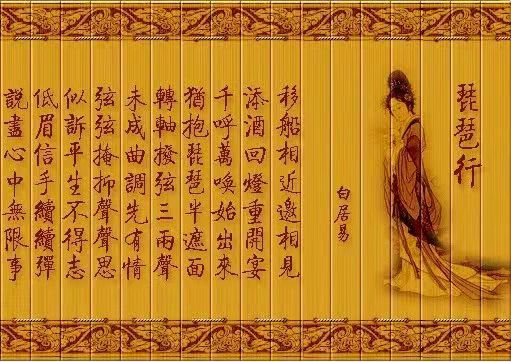 琵琶行
白居易
移船相近邀相見
添酒回燈重開宴
千呼萬喚始出來
猶抱琵琶半遮面
轉軸撥弦三兩聲
未成曲調先有情
弦弦掩抑聲聲思
似訴平生不得志
低眉信手續續彈
說盡心中無限事